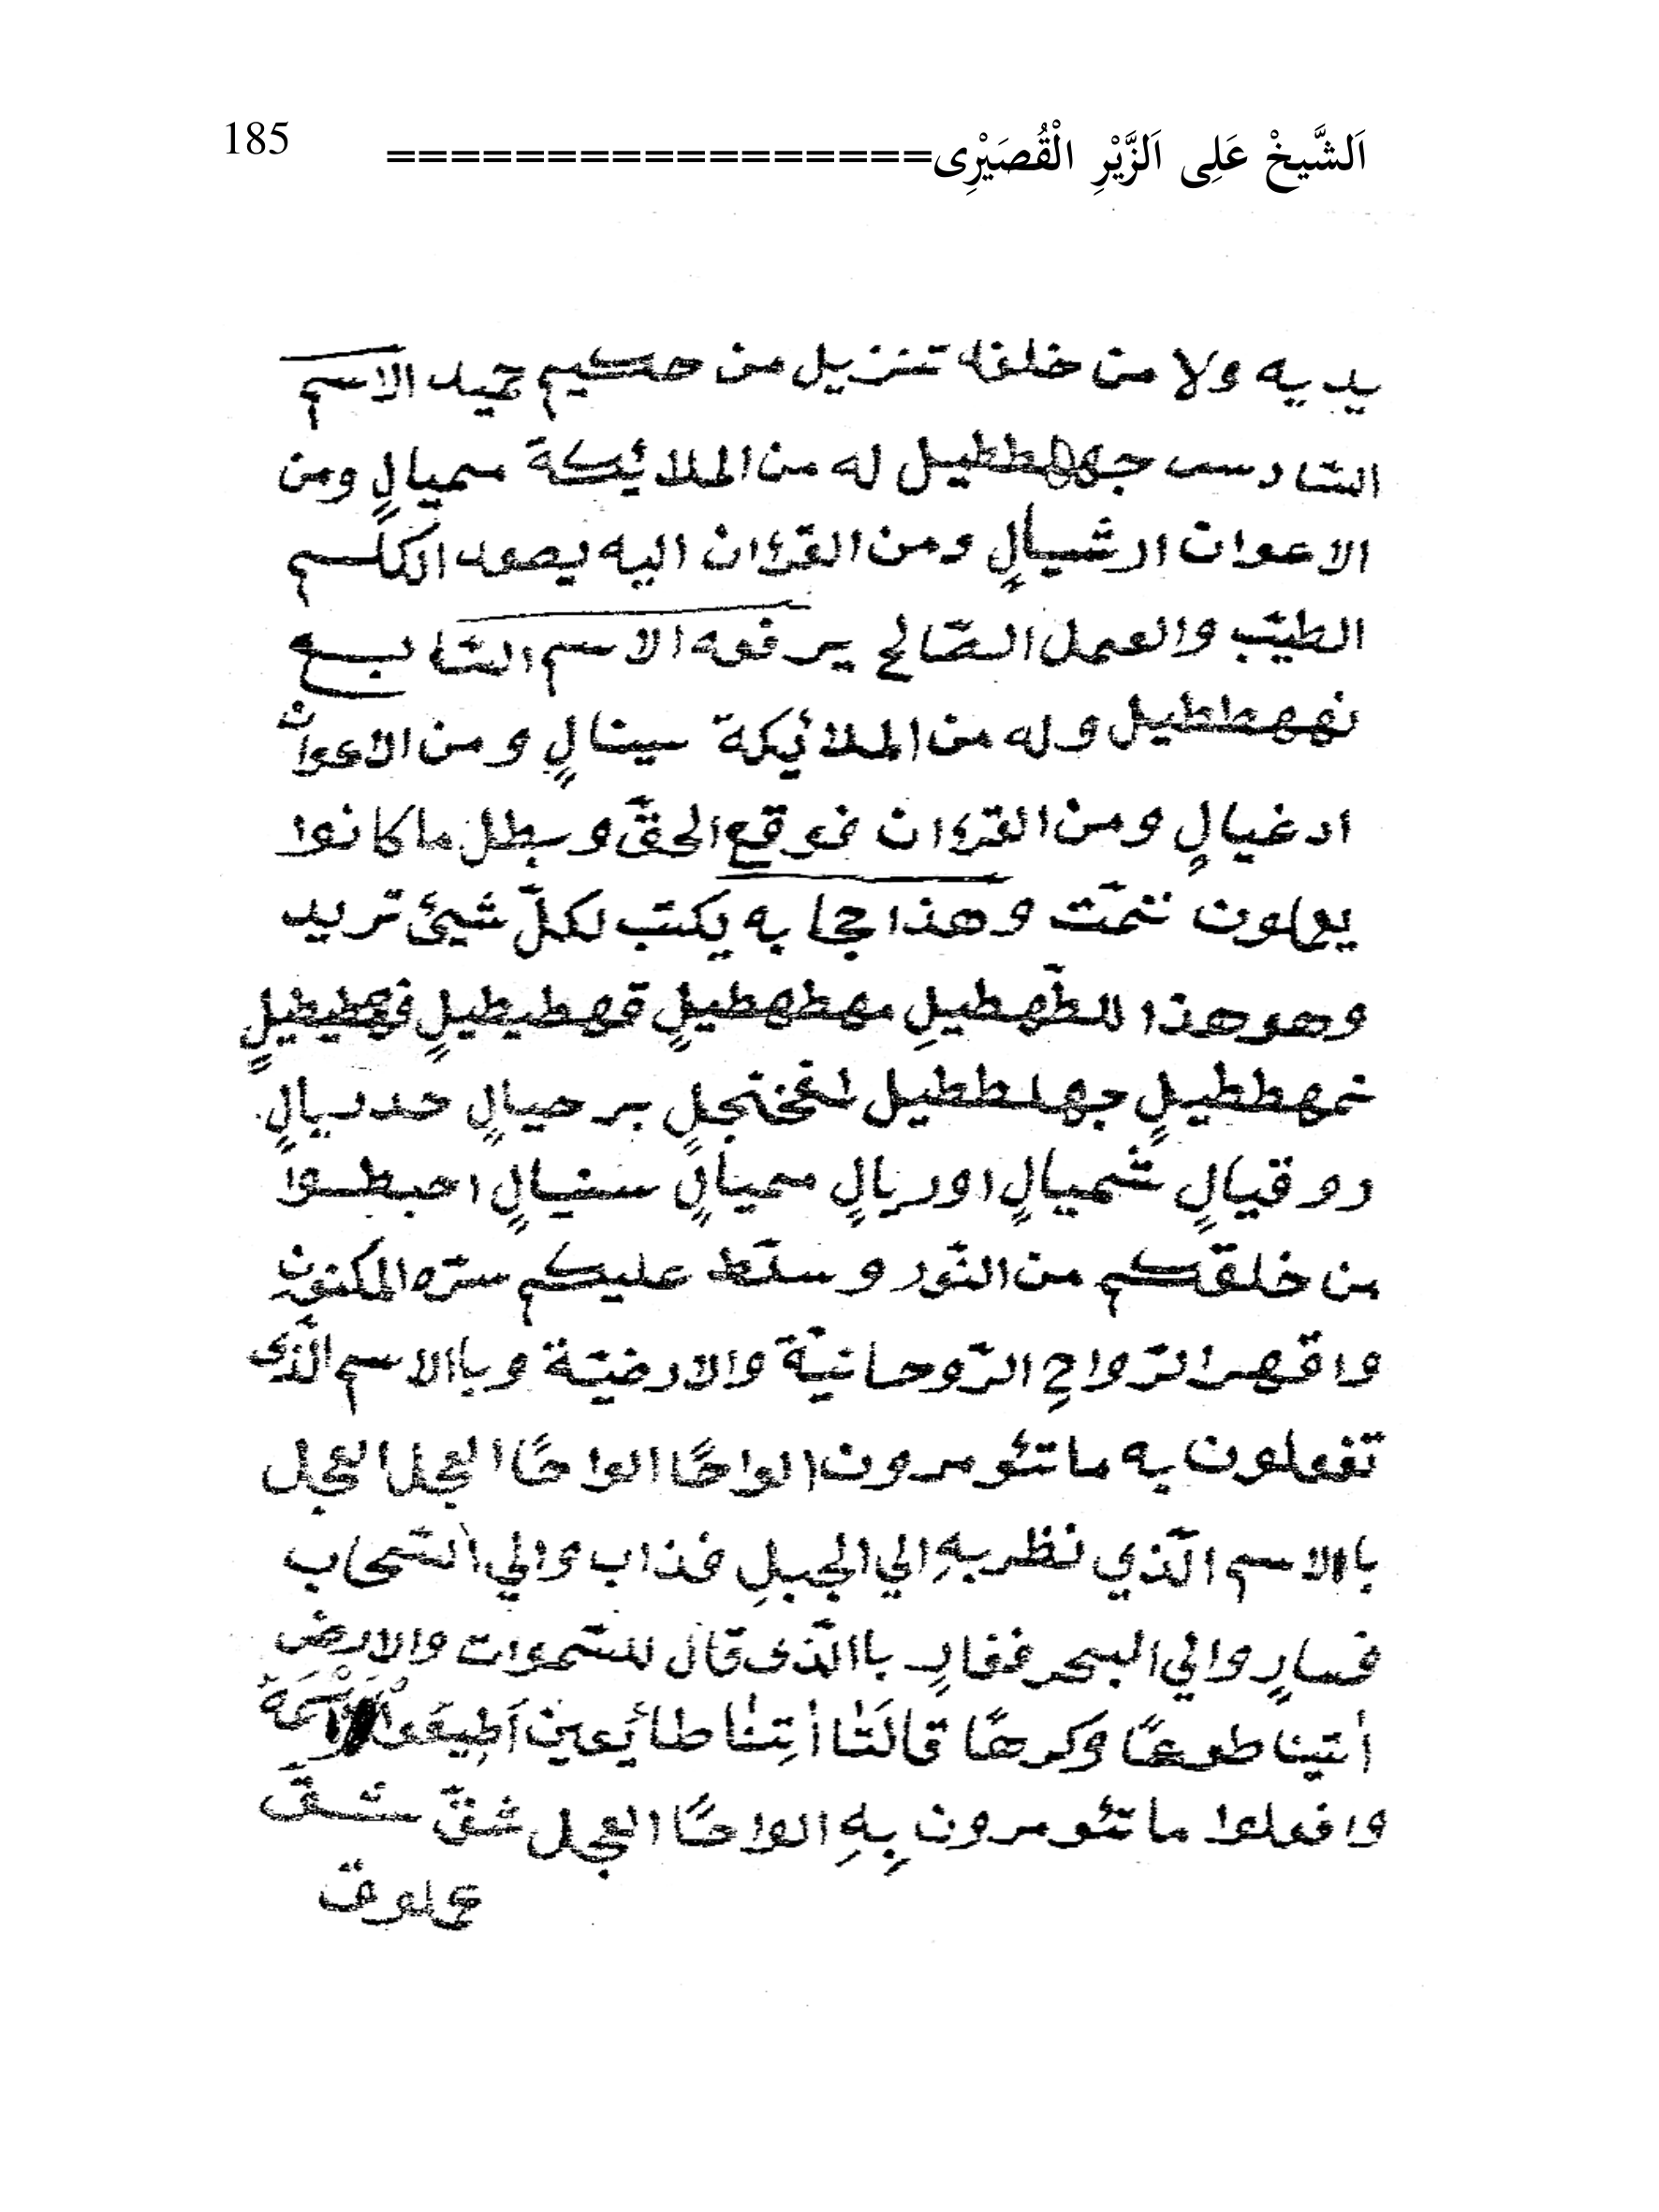 اَلشَّيخْ عَلِى اَلزَّيْرِ الْقُصَيْرِى================= 185
يديه ولا من خلفه تنزيل من حكيم حميد الاسم
السّادس جهلططيل له من الملائيكة سميالٍ ومن
الاعوان ارشيالٍ ومن القرءان اليه يصعد الكلم
الطيّب والعمل الصّالح يرفعه الاسم السّابع
نهہططيل وله من الملائيكة سينالٍ ومن الاعوان
ادغيالٍ ومن القرءان فوقع الحقّ وبطل ماكانوا
يعملون تتمّت وهذا حجابه يكتب لكلّ شيئ تريد
وهو هذا للطّهطيلِ مهطهطيلٍ قهطيطيلٍ فهطيطيلٍ
نمهططيلٍ جهلططيل لخنجلٍ برحيالٍ حدديالٍ
روقيالٍ شميالٍ اوريالٍ سميالٍ سنيالٍ احبطوا
من خلقكم من النّور وسلّط عليكم سرّه المكنون
واقهر الرّواحِ الرّوحانيّة والارضيّة وباالاسم الّذى
تفعلون به ماتئومرون الواحًا الواحًا العجل العجل
باالاسم الّذي نظر بهِ الي الجبلِ فذاب والي السّحاب
فسارٍ والي البحر ففارٍ باالّذى قال للسّموات والارض
أتينا طوعًا وكرهًا قالَتٰا أتِنٰا طائَعين اَطِيعُوا
وافعلوا ماتئومرون بِهِ الواحًا العجل شقّ شقّ